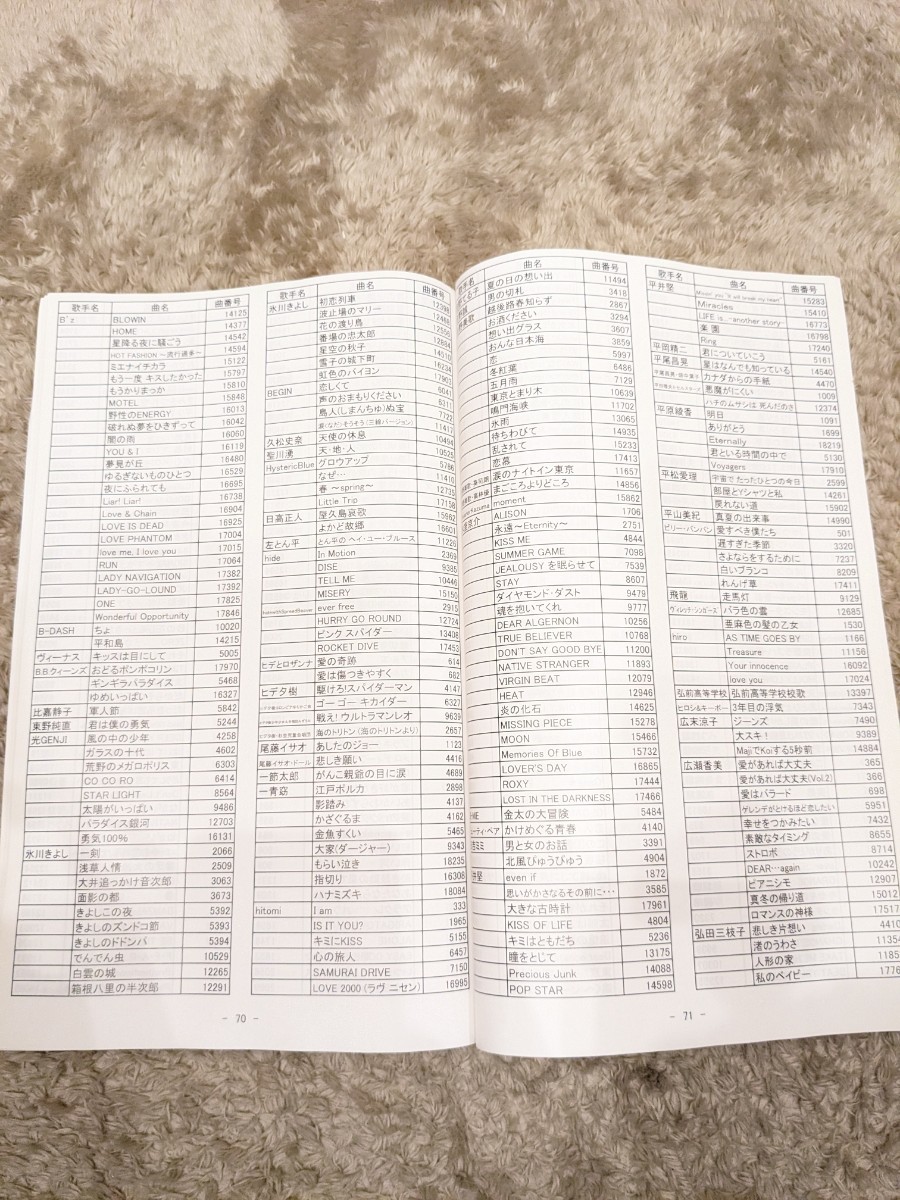 歌手名 曲名 曲番号
B'z BLOWIN 14125
HOME 14377
星降る夜に騒ごう 14542
HOT FASHION ～流行過多～ 14594
ミエナイチカラ 15122
もう一度 キスしたかった 15797
もうかりまっか 15810
MOTEL 15848
野性のENERGY 16013
破れぬ夢をひきずって 16042
闇の雨 16060
YOU & I 16119
夢見が丘 16480
ゆるぎないものひとつ 16529
夜にふられても 16695
Liar! Liar! 16738
Love & Chain 16904
LOVE IS DEAD 16925
LOVE PHANTOM 17004
love me, I love you 17015
RUN 17064
LADY NAVIGATION 17382
LADY-GO-LOUND 17392
ONE 17825
Wonderful Opportunity 17846
B-DASH ちょ 10020
平和島 14215
ヴィーナス キッスは目にして 5005
B.B.クィーンズ おどるポンポコリン 17970
ギンギラパラダイス 5468
ゆめいっぱい 16327
比嘉静子 軍人節 5842
東野純直 君は僕の勇気 5244
光GENJI 風の中の少年 4258
ガラスの十代 4602
荒野のメガロポリス 6303
CO CO RO 6414
STAR LIGHT 8564
太陽がいっぱい 9486
パラダイス銀河 12703
勇気100% 16131
氷川きよし 一剣 2066
浅草人情 2509
大井追っかけ音次郎 3063
面影の都 3673
きよしこの夜 5392
きよしのズンドコ節 5393
きよしのドドンパ 5394
でんでん虫 10529
白雲の城 12265
箱根八里の半次郎 12291
歌手名 曲名 曲番号
氷川きよし 初恋列車 12398
波止場のマリー
花の渡り鳥
番場の忠太郎
星空の秋子 14510
雪子の城下町 16234
虹色のバイヨン 17903
BEGIN 恋しくて 6041
声のおまもりください 8311
島人(しまんちゅ)ぬ宝 7722
涙(なだ)そうそう(三線バージョン) 11417
久松史奈 天使の休息 10494
聖川湧 天・地・人 10525
HystericBlue グロウアップ 5786
なぜ… 11410
春 ～spring～ 12735
Little Trip 17158
日高正人 屋久島哀歌 15962
よかど故郷 16601
左とん平 とん平の ヘイ・ユー・ブルース 11226
hide In Motion 2369
DISE 9385
TELL ME 10446
MISERY 15150
ever free 2915
HURRY GO ROUND 12724
ピンク スパイダー 13408
ROCKET DIVE 17453
ヒデとロザンナ 愛の奇跡 614
愛は傷つきやすく 682
ヒデタ樹 駆けろ!スパイダーマン 4147
ゴー ゴー キカイダー 6327
戦え! ウルトラマンレオ 9639
海のトリトン (海のトリトンより) 2657
尾藤イサオ あしたのジョー 1123
尾藤イサオ・ドール 悲しき願い 4416
一節太郎 がんこ親爺の目に涙 4689
一青窈 江戸ポルカ 2898
影踏み 4137
かざぐるま 4162
金魚すくい 5465
大家(ダージャー) 9343
もらい泣き 18235
指切り 16308
ハナミズキ 18084
hitomi I am 333
IS IT YOU? 1965
キミにKISS 5155
心の旅人 6457
SAMURAI DRIVE 7150
LOVE 2000 (ラヴ ニセン) 16995
- 70 -
歌手名 曲名 曲番号
夏の日の想い出 11494
男の切札 3418
越後路春知らず 2867
お酒ください 3294
想い出グラス 3607
おんな日本海 3859
恋 5997
冬紅葉 6486
五月雨 7129
東京とまり木 10639
鳴門海峡 11702
氷雨 13065
待ちわびて 14935
乱されて 15233
恋慕 17413
涙のナイトイン東京 11657
まごころよりどころ 14856
moment 15862
ALISON 1706
永遠～Eternity～ 2751
KISS ME 4844
SUMMER GAME 7098
JEALOUSY を眠らせて 7539
STAY 8607
ダイヤモンド・ダスト 9479
魂を抱いてくれ 9777
DEAR ALGERNON 10256
TRUE BELIEVER 10768
DON'T SAY GOOD BYE 11200
NATIVE STRANGER 11893
VIRGIN BEAT 12079
HEAT 12946
炎の化石 14625
MISSING PIECE 15278
MOON 15466
Memories Of Blue 15732
LOVER'S DAY 16865
ROXY 17444
LOST IN THE DARKNESS 17466
金太の大冒険 5484
かけめぐる青春 4140
男と女のお話 3391
北風ぴゅうぴゅう 4904
even if 1872
思いがかさなるその前に・・・ 3585
大きな古時計 17961
KISS OF LIFE 4804
キミはともだち 5236
瞳をとじて 13175
Precious Junk 14088
POP STAR 14598
歌手名 曲名 曲番号
平井堅 Missin' you ~It will break my heart~ 15283
Miracles 15410
LIFE is...~another story~ 16773
楽園 16798
Ring 17240
平岡精二 君についていこう 5161
平尾昌晃 星はなんでも知っている 14540
カナダからの手紙 4470
悪魔がにくい 1009
ハチのムサシは 死んだのさ 12374
平原綾香 明日 1091
ありがとう 1699
Eternally 18219
君といる時間の中で 5130
Voyagers 17910
平松愛理 宇宙で たったひとつの今日 2599
部屋とYシャツと私 14261
戻れない道 15902
平山美紀 真夏の出来事 14990
ビリー・バンバン 愛すべき僕たち 501
遅すぎた季節 3320
さよならをするために 7237
白いブランコ 8209
れんげ草 17411
飛龍 走馬灯 9129
ヴィレッヂ・シンガーズ バラ色の雲 12685
亜麻色の髪の乙女 1530
hiro AS TIME GOES BY 1166
Treasure 11156
Your innocence 16092
love you 17024
弘前高等学校 弘前高等学校校歌 13397
ヒロシ&キーボー 3年目の浮気 7343
広末涼子 ジーンズ 7490
大スキ! 9389
MajiでKoiする5秒前 14884
広瀬香美 愛があれば大丈夫 365
愛があれば大丈夫(Vol.2) 366
愛はバラード 698
ゲレンデがとけるほど恋したい 5951
幸せをつかみたい 7432
素敵なタイミング 8655
ストロボ 8714
DEAR…again 10242
ピアニシモ 12907
真冬の帰り道 15012
ロマンスの神様 17517
弘田三枝子 悲しき片想い 4410
渚のうわさ 11354
人形の家 1185
私のベイビー 1776
- 71 -